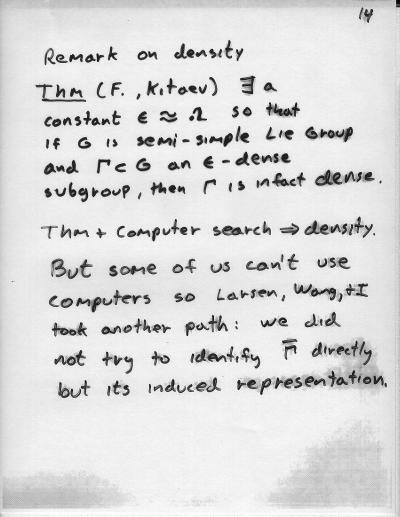 14
Remark on density
Thm (F., Kitaev) ∃ a
constant ϵ ≈ .2 so that
if G is semi-simple Lie Group
and Γ ⊂ G an ϵ-dense
subgroup, then Γ is infact dense.
Thm + Computer search ⇒ density.
But some of us can't use
computers so Larsen, Wang, + I
took another path: we did
not try to identify Γ̅ directly
but its induced representation.